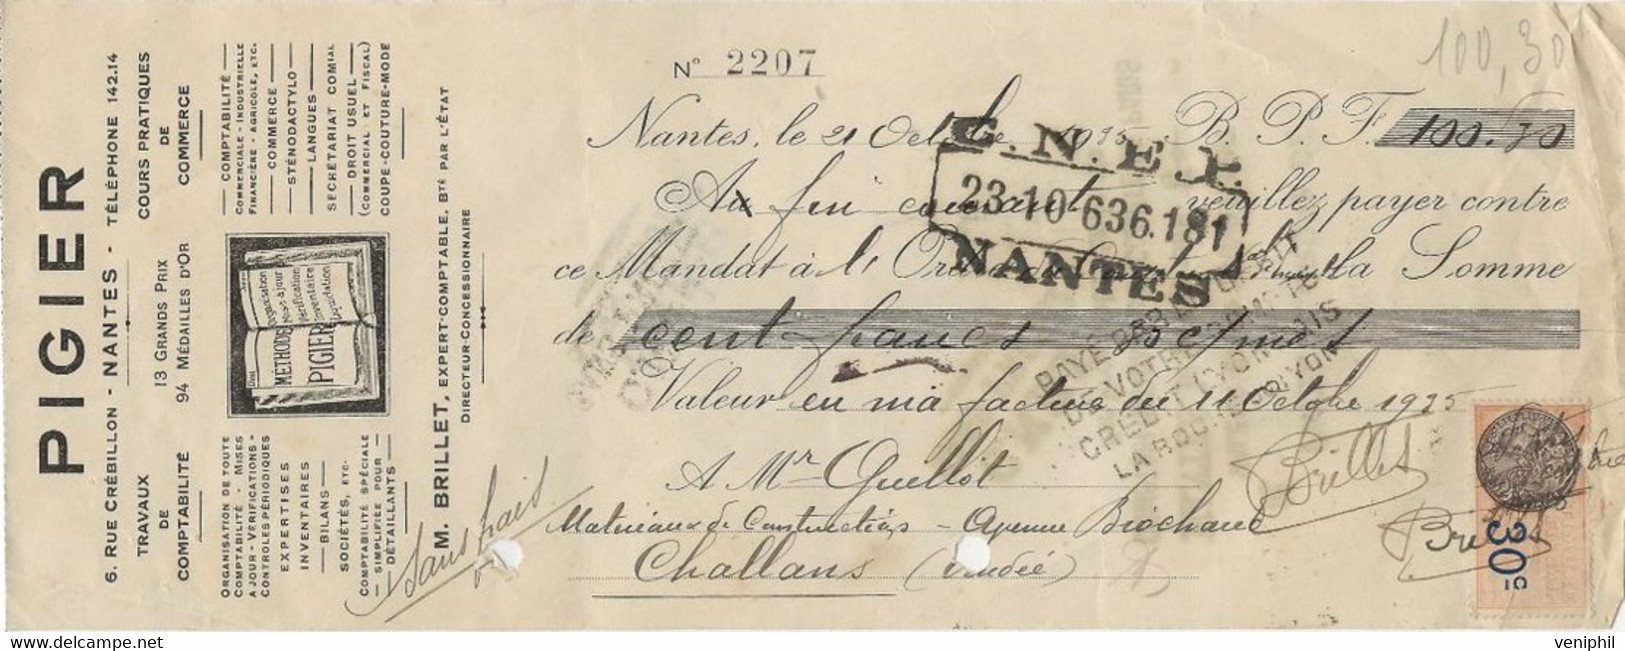 PIGIER
6. RUE CRÉBILLON - NANTES - TÉLÉPHONE 142.14
TRAVAUX
DE
COMPTABILITÉ
13 GRANDS PRIX
94 MÉDAILLES D'OR
COURS PRATIQUES
DE
COMMERCE
ORGANISATION DE TOUTE
COMPTABILITÉ - MISES
A JOUR - VÉRIFICATIONS -
CONTROLES PÉRIODIQUES
EXPERTISES
INVENTAIRES
— BILANS —
SOCIÉTÉS, ETC.
COMPTABILITÉ SPÉCIALE
— SIMPLIFIÉE POUR —
— DÉTAILLANTS —
Organisation
Mises à jour
Vérification
Inventaire
Liquidation
MÉTHODE
PIGIER
— COMPTABILITÉ —
COMMERCIALE - INDUSTRIELLE
FINANCIÈRE - AGRICOLE, ETC.
— COMMERCE —
— STÉNODACTYLO —
— LANGUES —
SECRÉTARIAT COMIAL
— DROIT USUEL —
(COMMERCIAL ET FISCAL)
COUPE-COUTURE-MODE
M. BRILLET, EXPERT-COMPTABLE, BTÉ PAR L'ÉTAT
DIRECTEUR-CONCESSIONNAIRE
Sans frais
100,30
N° 2207
Nantes, le 21 Octobre 1925 B. P. F. 100.30
Au fin courant veuillez payer contre
ce Mandat à l' Ordre du la Somme
de cent francs 30 c/mes
Valeur en ma facture du 11 Octobre 1925
A Mr Guillot
Matériaux de Constructions - Avenue Brochard
Challans (Vendée)
C.N.E.P.
23-10 636.181
NANTES
PAYÉ PAR LE DÉBIT
DE VOTRE COMPTE
CRÉDIT LYONNAIS
LA ROCHE S/YON
Brillet
Brillet
30c
veniphil